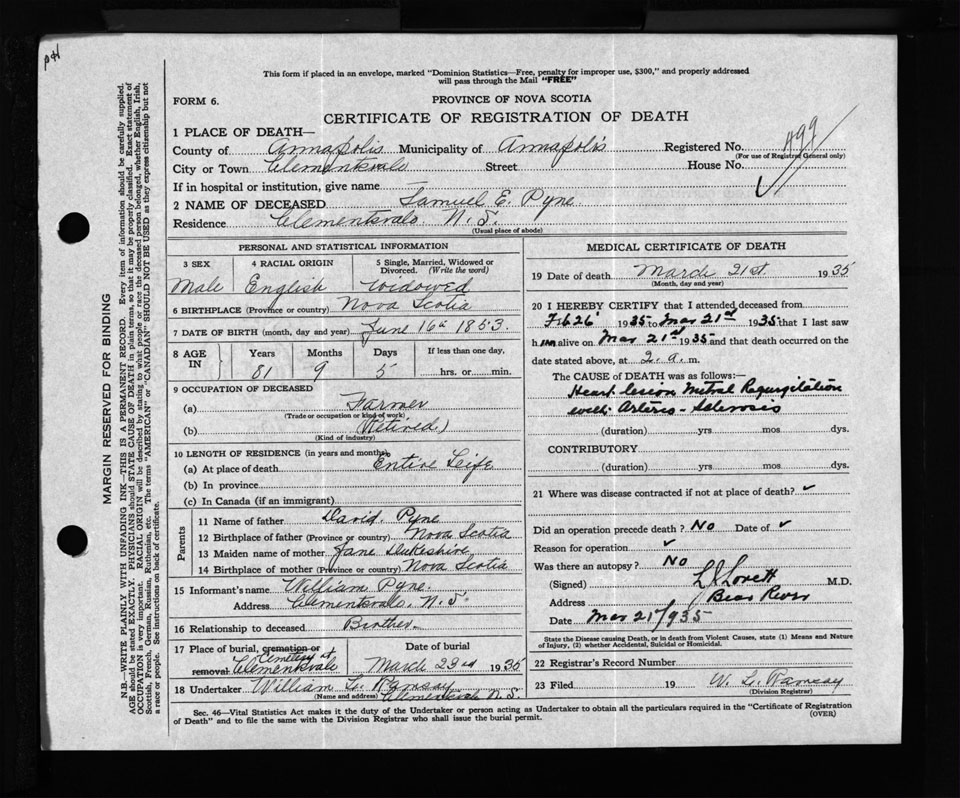 pH
This form if placed in an envelope, marked "Dominion Statistics—Free, penalty for improper use, $300," and properly addressed
will pass through the Mail "FREE"
FORM 6.
PROVINCE OF NOVA SCOTIA
CERTIFICATE OF REGISTRATION OF DEATH
1 PLACE OF DEATH—
County of Annapolis Municipality of Annapolis Registered No. 499
(For use of Registrar General only)
City or Town Clementsvale Street House No.
If in hospital or institution, give name
2 NAME OF DECEASED Samuel E. Pyne
Residence Clementsvale N. S.
(Usual place of abode)
PERSONAL AND STATISTICAL INFORMATION
3 SEX 4 RACIAL ORIGIN 5 Single, Married, Widowed or Divorced. (Write the word)
Male English Widowed
6 BIRTHPLACE (Province or country) Nova Scotia
7 DATE OF BIRTH (month, day and year) June 16th 1853.
8 AGE IN Years Months Days If less than one day,
81 9 5 hrs. or min.
9 OCCUPATION OF DECEASED
(a) Farmer
(Trade or occupation or kind of work)
(b) (Retired)
(Kind of industry)
10 LENGTH OF RESIDENCE (in years and months)
(a) At place of death Entire Life
(b) In province
(c) In Canada (if an immigrant)
Parents
11 Name of father David. Pyne
12 Birthplace of father (Province or country) Nova Scotia
13 Maiden name of mother Jane Dukeshire
14 Birthplace of mother (Province or country) Nova Scotia
15 Informant's name William Pyne.
Address Clementsvale, N. S.
16 Relationship to deceased Brother
17 Place of burial, cremation or removal Cemetery at Clementsvale
Date of burial
March 23rd 1935
18 Undertaker William L. Ramsay
(Name and address) Clementsvale N. S.
MEDICAL CERTIFICATE OF DEATH
19 Date of death March 21st. 1935
(Month, day and year)
20 I HEREBY CERTIFY that I attended deceased from
Feb 26 1935 to Mar 21st 1935 that I last saw
him alive on Mar 21st 1935 and that death occurred on the
date stated above, at 2. a. m.
The CAUSE of DEATH was as follows:—
Heart lesion Mitral Regurgitation
with Arterio-Sclerosis
(duration) yrs mos dys.
CONTRIBUTORY
(duration) yrs mos dys.
21 Where was disease contracted if not at place of death? ✓
Did an operation precede death? No Date of ✓
Reason for operation ✓
Was there an autopsy? No
(Signed) L J Lovett M.D.
Address Bear River
Date Mar 21/935
State the Disease causing Death, or in death from Violent Causes, state (1) Means and Nature
of Injury, (2) whether Accidental, Suicidal or Homicidal.
22 Registrar's Record Number
23 Filed 19 W. L. Ramsay
(Division Registrar)
Sec. 46—Vital Statistics Act makes it the duty of the Undertaker or person acting as Undertaker to obtain all the particulars required in the "Certificate of Registration
of Death" and to file the same with the Division Registrar who shall issue the burial permit. (OVER)
MARGIN RESERVED FOR BINDING
N.B.—WRITE PLAINLY WITH UNFADING INK—THIS IS A PERMANENT RECORD. Every item of information should be carefully supplied.
AGE should be stated EXACTLY. PHYSICIANS should STATE CAUSE OF DEATH in plain terms, so that it may be properly classified. Exact statement of
OCCUPATION is very important. RACIAL ORIGIN will be described by stating to what people or race the deceased person belonged, whether English, Irish,
Scottish, French, German, Russian, Ruthenian, etc. The terms "AMERICAN" or "CANADIAN" SHOULD NOT BE USED as they express citizenship but not
a race or people. See instructions on back of certificate.